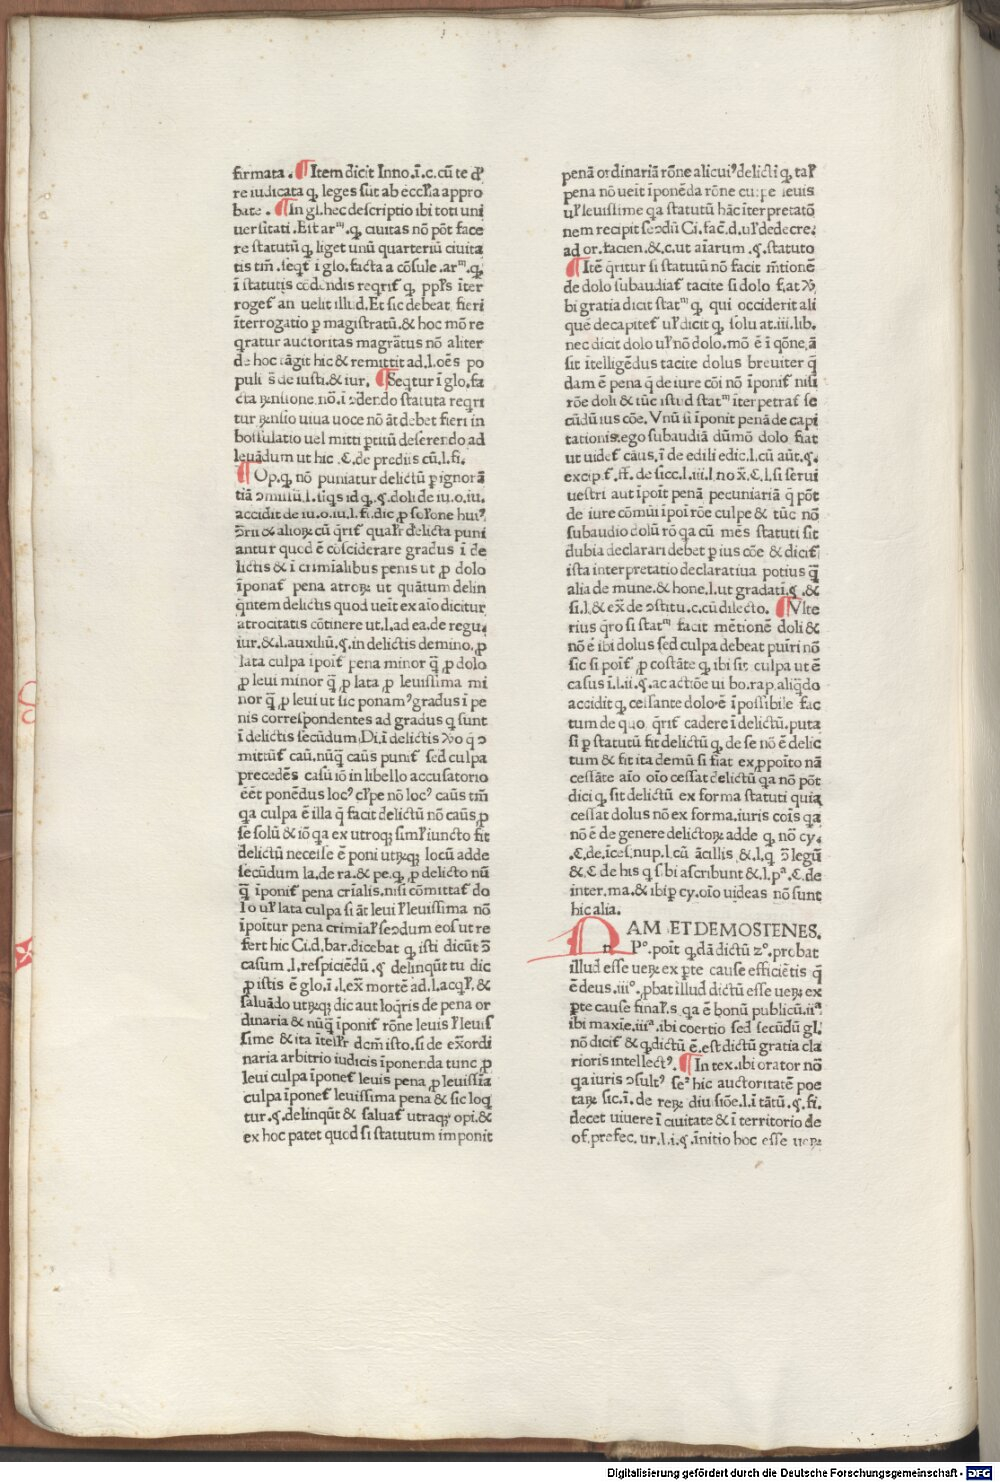 firmata . ¶ Item dicit Inno.ī.c.cū te ꝑ
re iudicata ꝙ leges sūt ab eccl'ia appro
bate . ¶ In gl.hec descriptio ibi toti uni
uersitati. Est arᵐ.ꝙ ciuitas nō pōt face
re statutū ꝙ liget unū quarteriū ciuita
tis tm̄. seqt' ī glo.facta a cōsule.arᵐ.ꝙ
ī statutis cōdendis reqrit' ꝙ ppl's īter
roget' an uelit illud.Et sic debeat fieri
īterrogatio ꝑ magistratū.& hoc mō re
q̄ratur auctoritas magr̄atus nō aliter
de hoc tāgit hic & remittit ad.l.oēs po
puli s̄ de iusti.& iur. ¶ Seq̄tur ī glo.fa
cta ꝶensione.nō.ī ↄdendo statuta reqri
tur ꝶensio uiua uoce nō āt debet fieri in
bossulatio uel mitti ꝑtitū deferendo ad
leuādum ut hic .C.de prediis cū.l.fi.
¶ Op.ꝙ nō puniatur delictū ꝑ ignorā
tiā
accidit de iu.o.iu.l.fi.dic ꝓ sol'one huiꝰ
ↄ̄rii & alioꝝ cū q̄rit' qual'r delicta puni
antur quod ē cōsiderare gradus ī de
lictis & ī crimialibus penis ut ꝓ dolo
īponat' pena atroꝝ ut quātum delin
q̄ntem delictis quod ueīt ex aīo dicitur
atrocitatis cōtinere ut.l.ad ea.de regu.
iur.&.l.auxiliū.§.in delictis demino.ꝓ
lata culpa īpoit' pena minor q̄ ꝓ dolo
ꝓ leui minor q̄ ꝓ lata ꝓ leuissima mi
nor q̄ ꝓ leui ut sic ponamꝰ gradus ī pe
nis correspondentes ad gradus ꝙ sunt
ī delictis secūdum Di.ī delictis
mittūt' caū.nūq̄ caūs punit' sed culpa
precedēs casū iō in libello accusatorio
ēēt ponēdus locꝰ cl'pe nō locꝰ caūs tm̄
qa culpa ē illa q̄ facit delictū nō caūs ꝓ
se solū & iō qa ex utroqꝫ siml' iuncto fit
delictū necesse ē poni utꝶqꝫ locū adde
secūdum la.de ra.& pe.ꝙ ꝓ delicto nū
q̄ īponit' pena cr̄ialis.nisi cōmittat' do
lo ul' lata culpa si āt leui l' leuissima nō
īpoitur pena crimial' seↄdum eos ut re
fert hic Ci.d.bar.dicebat ꝙ isti dicūt ↄ̄
casum .l.respiciēdū .§ delinqūt tu dic
ꝓ istis ē glo.ī.l.ex̄ mortē ad.l.acql'.&
saluādo utꝶqꝫ dic aut loqris de pena or
dinaria & nūq̄ īponit' rōne leuis l' leuis
sime & ita ītell'r dcm̄ isto.si de ex̄ordi
naria arbitrio iudicis īponenda tunc ꝓ
leui culpa īponet' leuis pena ꝓ leuissīa
culpa īponet' leuissima pena & sic loq̄
tur.§.delinqūt & saluat' utraqꝫ opi.&
ex hoc patet quod si statutum imponit
penā ordinariā rōne alicuiꝰ delicti ꝙ tal'
pena nō ueīt īponēda rōne culpe leuis
ul' leuissime qa statutū hāc īterpretatō
nem recipit seↄdū Ci.fac̄.d.ul' de decre.
ad or.facien.&.c.ut aīarum .§.statuto
¶ Itē q̄ritur si statutū nō facit m̄tionē
de dolo subaudiat' tacite si dolo f̄at
bi gratia dicit statᵐ ꝙ qui occiderit ali
quē decapitet' ul' dicit ꝙ solu at.iii.lib.
nec dicit dolo ul' nō dolo.mō ē ī q̄one,ā
sit ītelligēdus tacite dolus breuiter q̄
dam ē pena q̄ de iure cōi nō īponit' nisi
rōe doli & tūc istud statᵐ īterpretat' se
cūdū ius cōe. Vnū si īponit penā de capi
tationis.ego subaudiā dūmō dolo fiat
ut uidet' cāus.ī de edili edic.l.cū aūt.§.
excipit'.ff. de sicc.l.iii.l.no x̄.C.l.si serui
uestri aut īpoīt penā pecuniariā q̄ pōt
de iure cōmūi īpoī rōe culpe & tūc nō
subaudio dolū rō qa cū mēs statuti sit
dubia declarari debet ꝑ ius cōe & dicit'
ista interpretatio declaratiua potius q̄
alia de mune.& hone.l.ut gradati.§ .&
si.l.& ex̄ de ↄstitu.c.cū dilecto. ¶ Vlte
rius q̄ro si statᵐ facit mētionē doli &
nō ē ibi dolus sed culpa debeat puīri nō
sic si poīt' ꝓ costāte ꝙ ibi sit culpa ut ē
casus ī.l.ii.§.ac actiōe ui bo.rap.aliq̄do
accidit ꝙ cessante dolo ē īpossibile fac
tum de quo q̄rit' cadere ī delictū.puta
si ꝑ statutū fit delictū ꝙ de se nō ē delic
tum & fit ita demū si fiat ex ꝓpoīto nā
cessāte aīo oīo cessat delictū qa nō pōt
dici ꝙ sit delictū ex forma statuti quia
cessat dolus nō ex forma.iuris coīs qa
nō ē de genere delictoꝝ adde ꝙ nō cy.
.C.de.īces.nup.l.cū ācillis &.l.q̄ ↄ̄ legū
&.C de his q̄ s̄bi ascribunt &.l.pᵃ.C.de
inter.ma.& ibiꝑ cy.oīo uideas nō sunt
hic alia.
NAM ET DEMOSTENES.
n Pᵒ.poīt ꝙ d̄ā dictū zᵒ.probat
illud esse ueꝝ ex ꝑte cause efficiētis q̄
ē deus.iiiᵒ.ꝓbat illud dictū esse ueꝝ ex
ꝑte cause final'.s.qa ē bonū publicū.iiᵃ.
ibi maxīe.iiiᵃ.ibi coertio sed secūdū gl.
nō dicit' & ꝙ dictū ē.est dictū gratia cla
rioris intellectꝰ. ¶ In tex.ibi orator nō
qa iuris ↄsultꝰ seᵈ hic auctoritatē poe
taꝝ sic.ī.de reꝝ diuisiōe.l.ī tātū.§.fi.
decet uiuere ī ciuitate & ī territorio de
of.prefec.ur.l.i.§.īnitio hoc esse ueꝝ
Digitalisierung gefördert durch die Deutsche Forschungsgemeinschaft - DFG